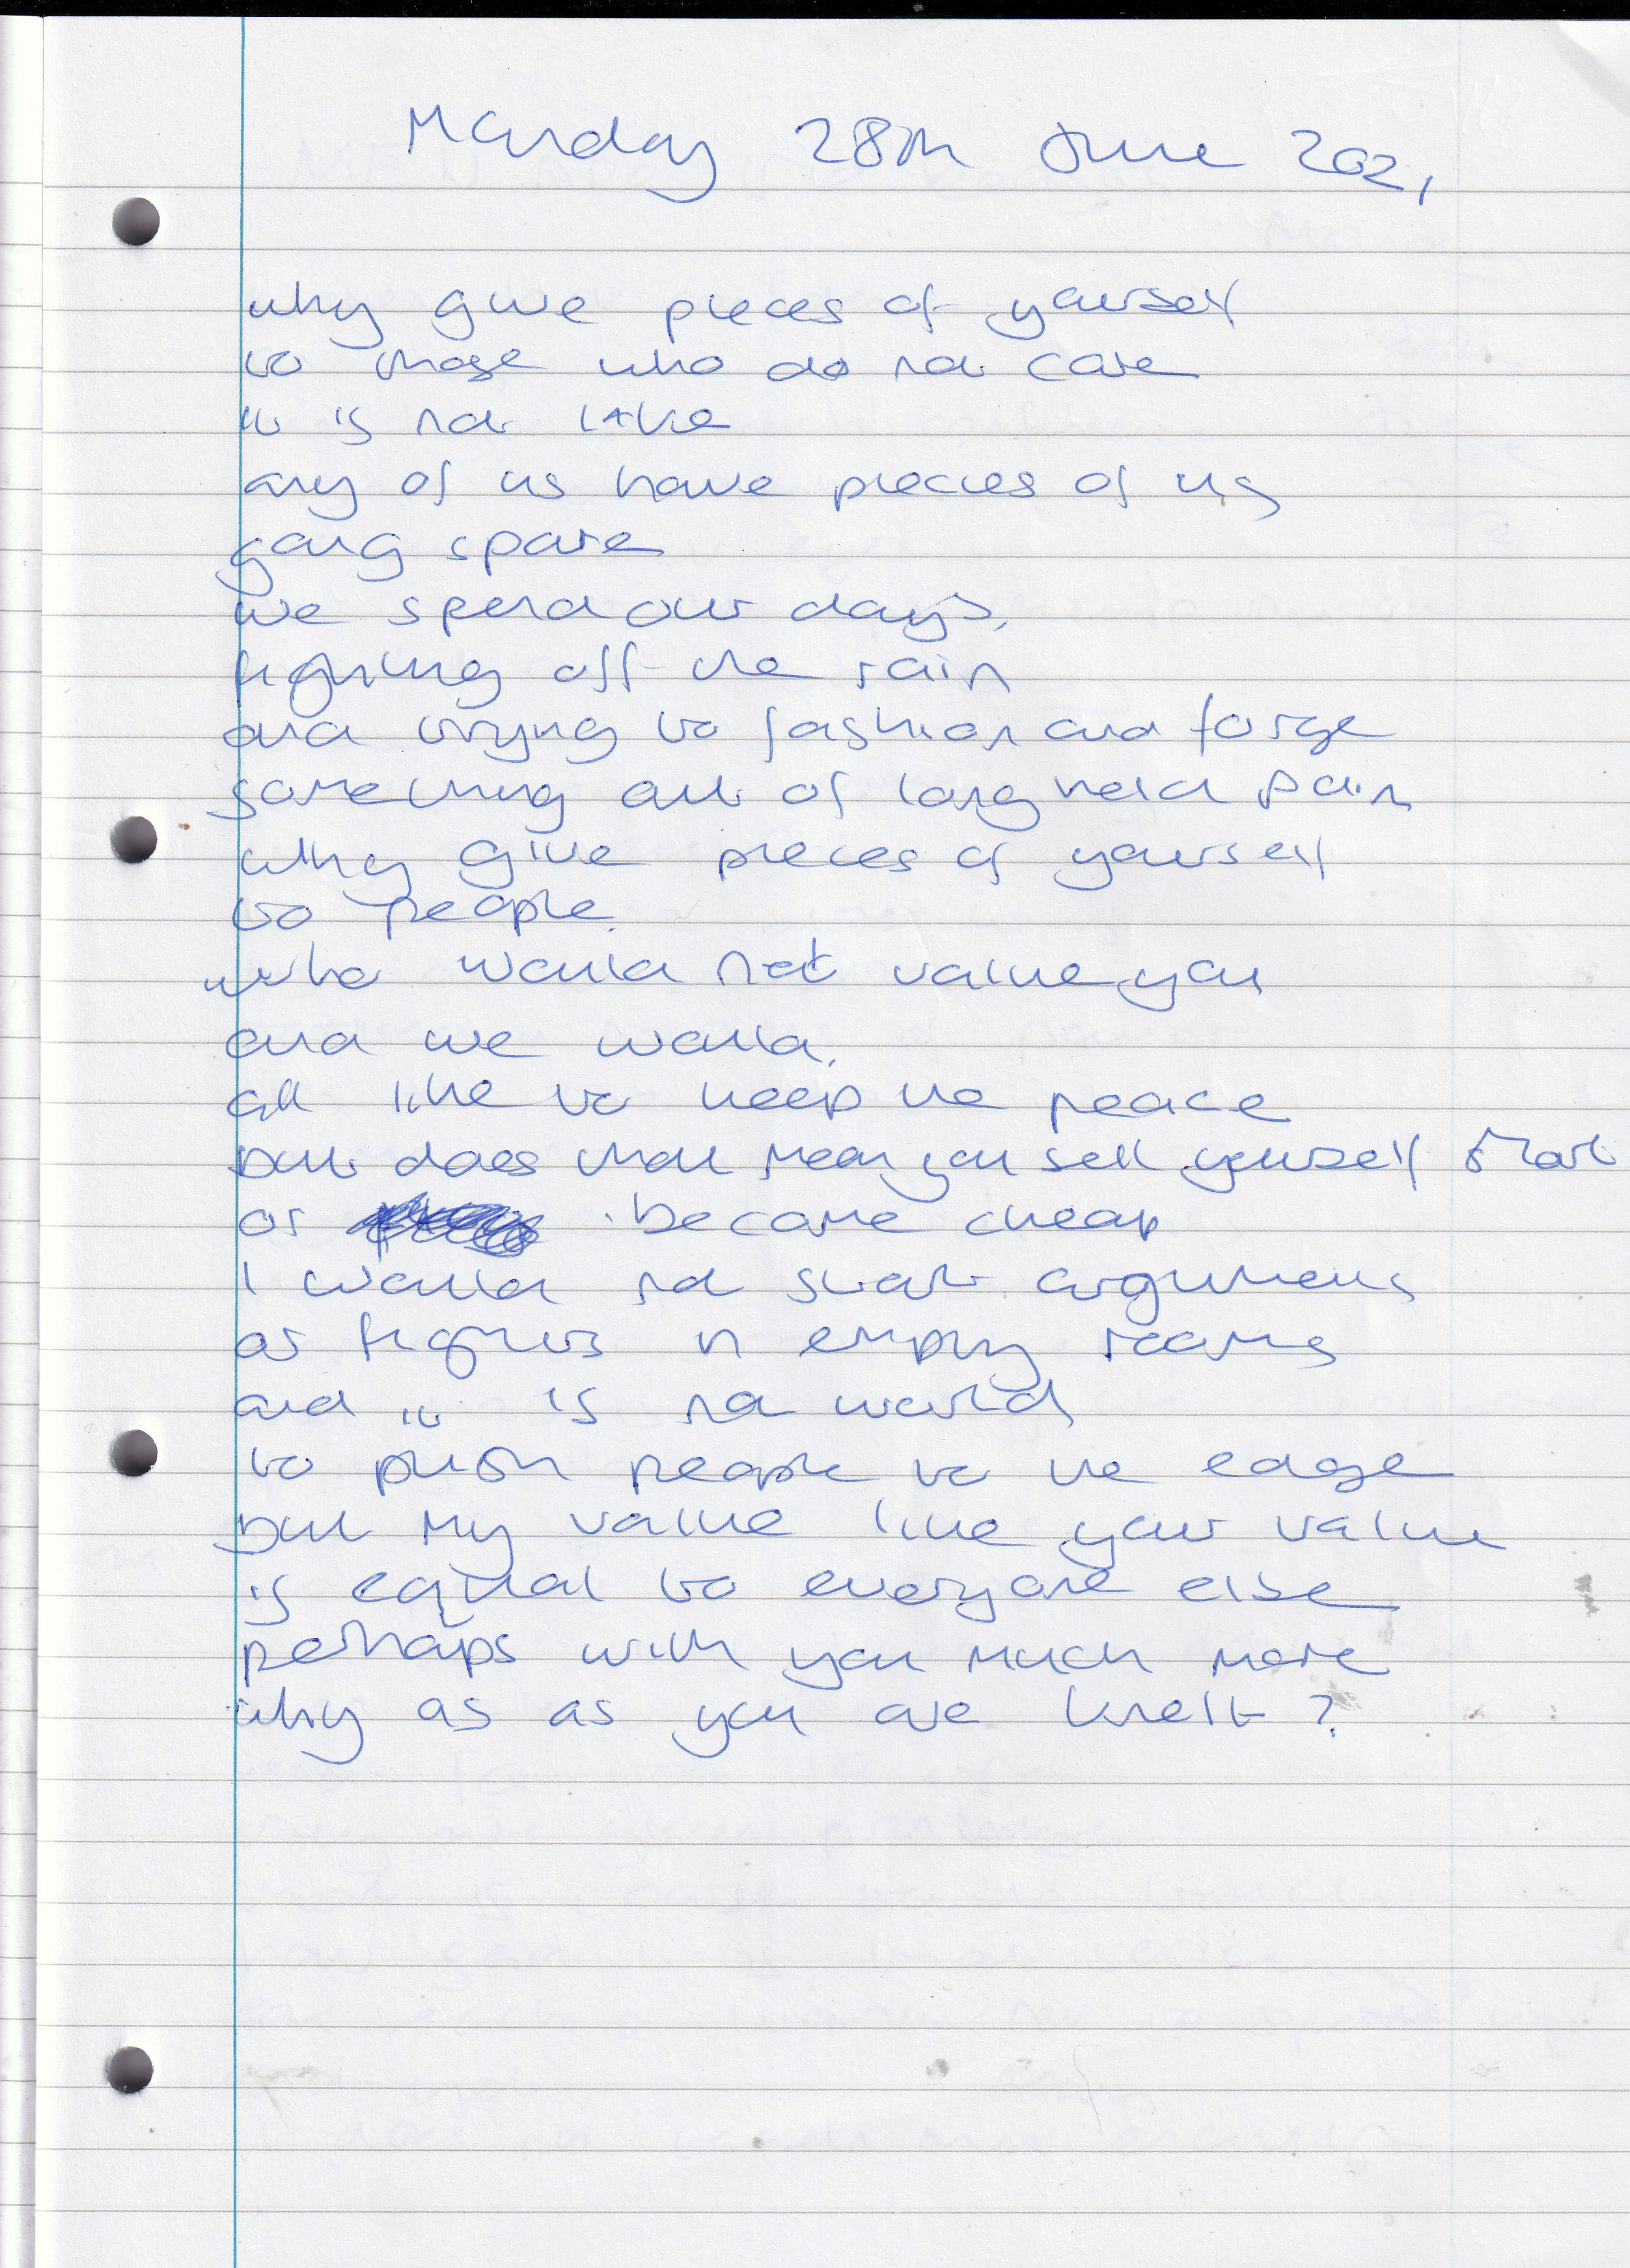 Monday 28th June 2021
why give pieces of yourself
to those who do not care
it is not like
any of us have piecies of us
going spare
we spend our days,
fighting off the rain
and trying to fashion and forge
something out of long held pain
why give pieces of yourself
to people.
who would not value you
and we would,
all like to keep the peace
but does that mean you sell yourself short
or become cheap
I would not start arguments
or fights in empty rooms
and it is not world
to push people to the edge
but my value like your value
is equal to everyone else
perhaps with you much more
why as as you are